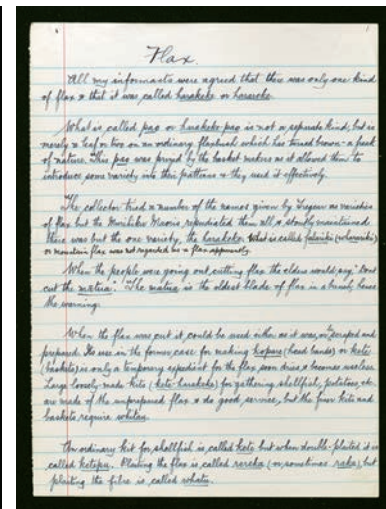 Flax.
All my informants were agreed that there was only one kind
of flax & that it was called harakeke or horereke.
What is called pao or harakeke-pao is not a separate kind, but is
merely a leaf or two on an ordinary flaxbush which has turned brown - a freak
of nature. This pao was prized by the basket makers as it allowed them to
introduce some variety into their patterns & they used it effectively.
The collector tried a number of the names given by Tregear as varieties
of flax but the Murihiku Maoris repudiated them all & stoutly maintained
there was but the one variety, the harakeke. What is called (wharariki)
or mountain flax was not regarded as a flax apparently.
When the people were going out cutting flax the elders would say: "Dont
cut the matua." The matua is the oldest blade of flax in a bunch, hence
the warning.
When the flax was cut it could be used either as it was, or scraped and
prepared. Its use in the former case for making kopare (head bands) or kete
(baskets) is only a temporary expedient for the flax soon dries & becomes useless.
Large loosely-made kits (kete-harakeke) for gathering shellfish, potatoes, etc.
are made of the unprepared flax & do good service, but the finer kits and
baskets require whitau.
An ordinary kit for shellfish is called kete but when double-plaited it is
called ketepu. Plaiting the flax is called rareka (or, sometimes raka), but
plaiting the fibre is called whatu.